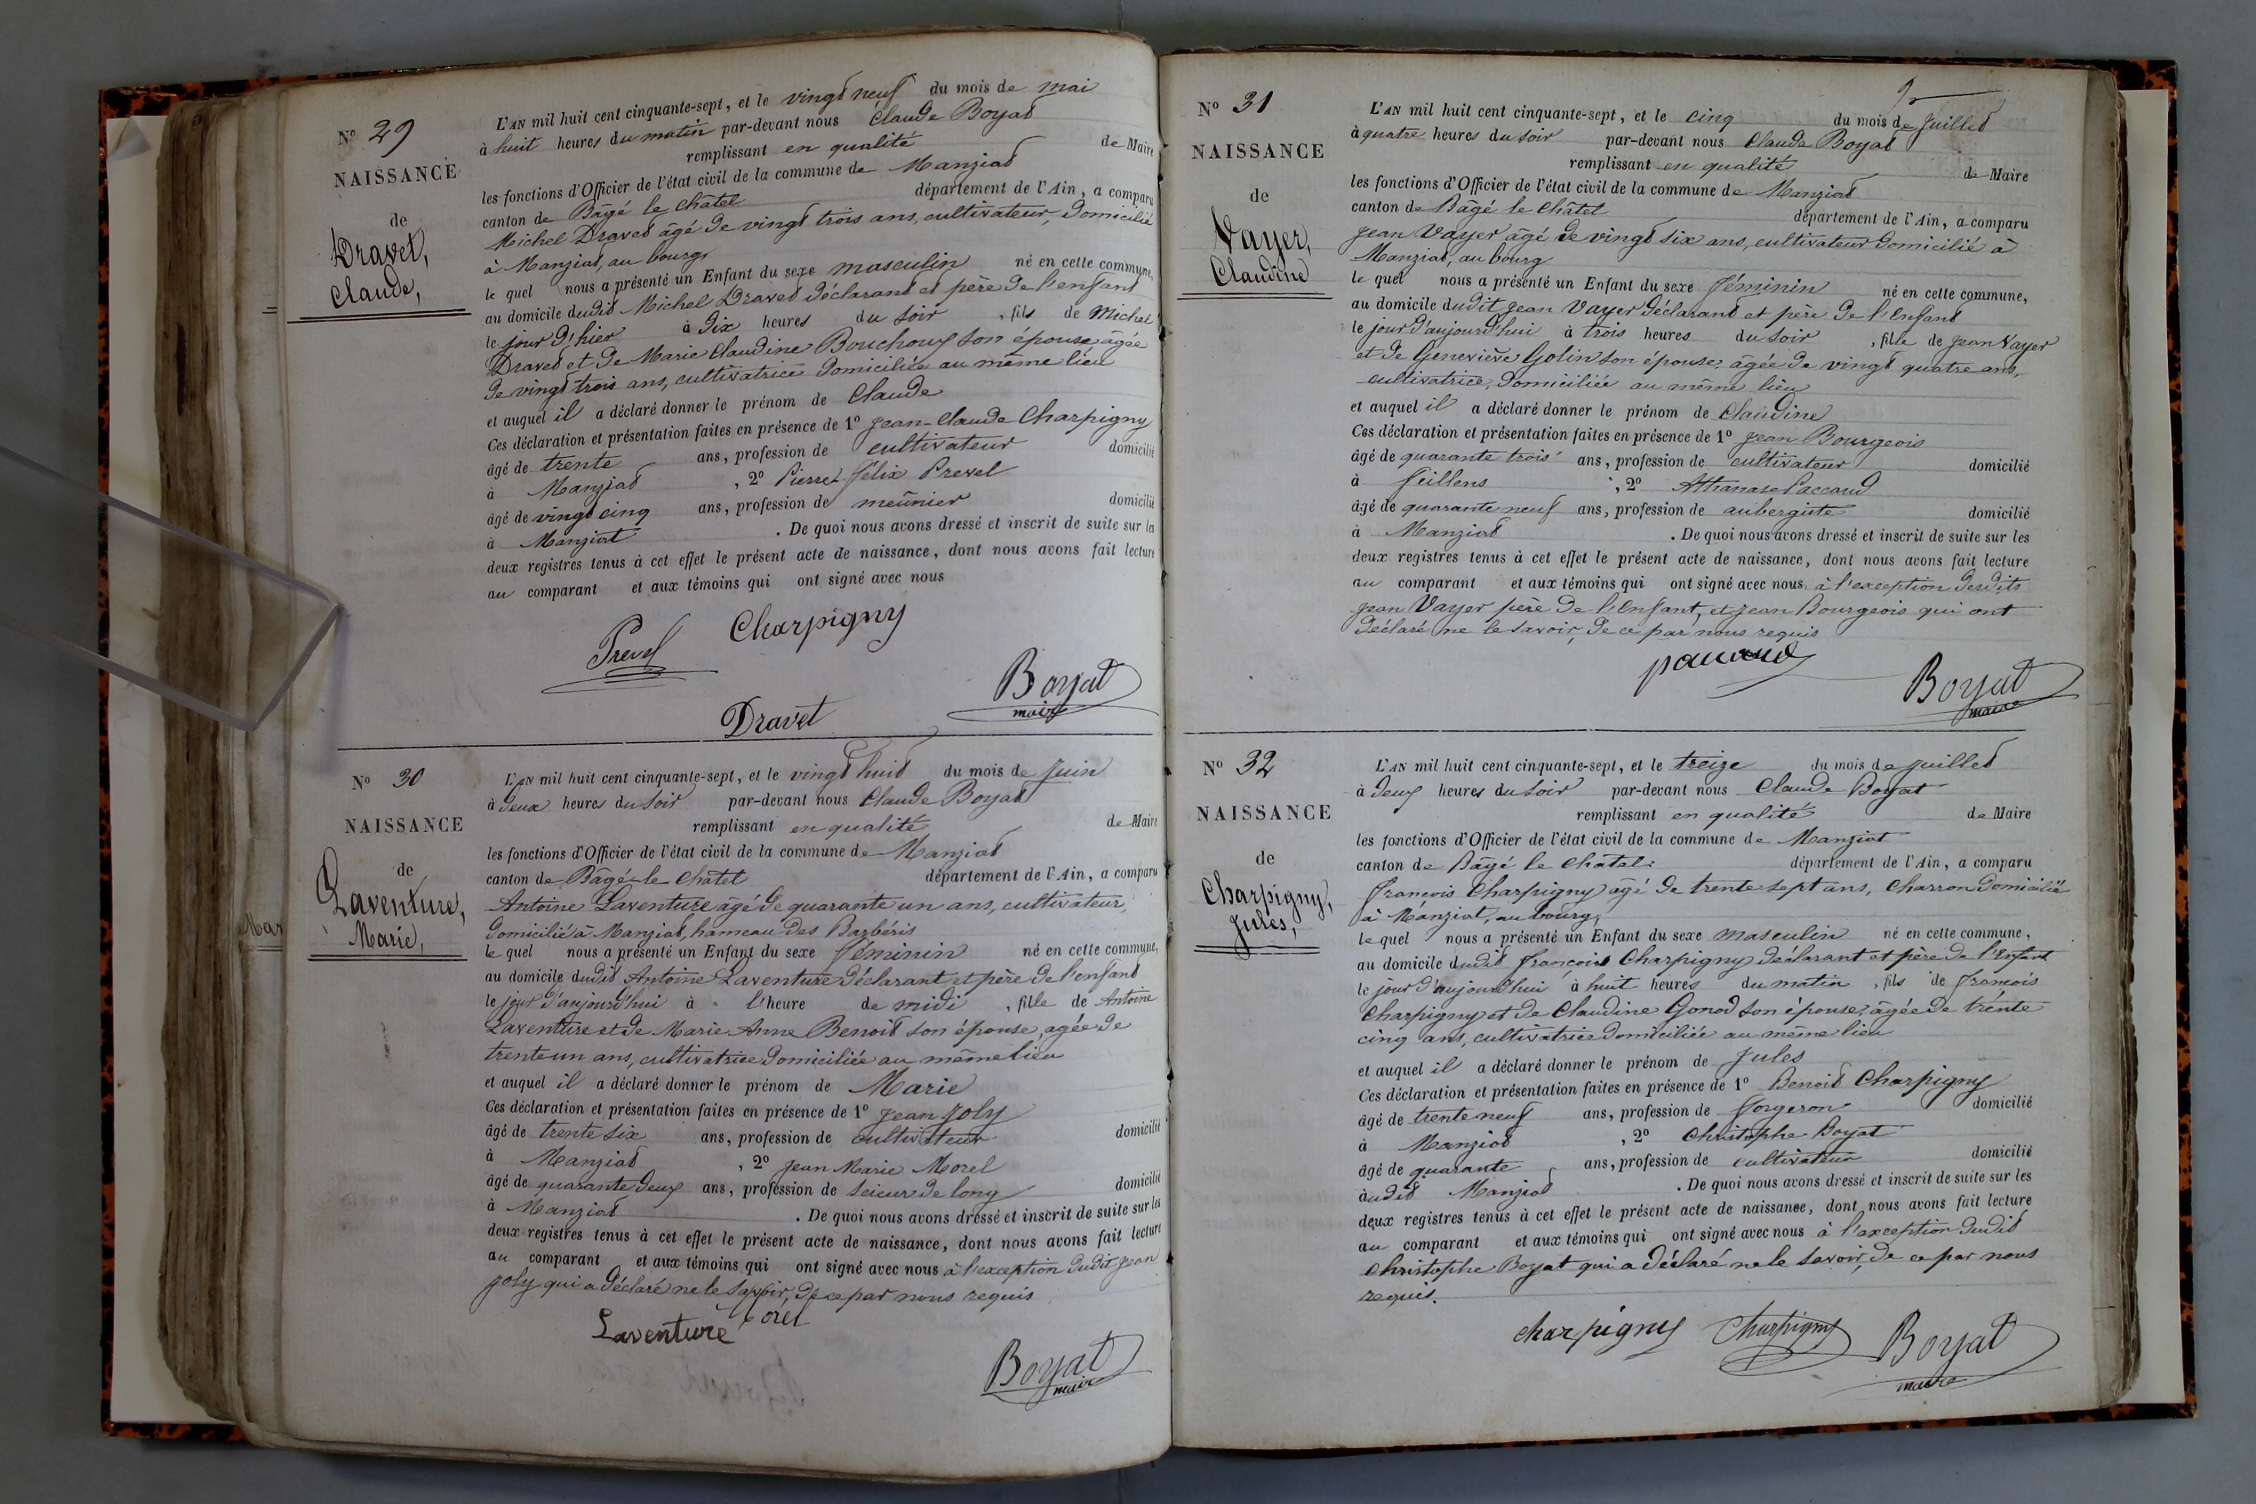 N° 29
NAISSANCE
de
Dravet,
Claude,
L'AN mil huit cent cinquante-sept, et le vingt neuf du mois de mai
à huit heures du matin par-devant nous Claude Boyat
remplissant en qualité de Maire
les fonctions d'Officier de l'état civil de la commune de Manziat
canton de Bâgé le Châtel département de l'Ain, a comparu
Michel Dravet âgé de vingt trois ans, cultivateur, domicilié
à Manziat, au bourg,
le quel nous a présenté un Enfant du sexe masculin né en cette commune,
au domicile dudit Michel Dravet déclarant et père de l'enfant
le jour d'hier à dix heures du soir, fils de Michel
Dravet et de Marie Claudine Bouchoux son épouse âgée
de vingt trois ans, cultivatrice domiciliée au même lieu
et auquel il a déclaré donner le prénom de Claude
Ces déclaration et présentation faites en présence de 1° Jean-Claude Charpigny
âgé de trente ans, profession de cultivateur domicilié
à Manziat, 2° Pierre Félix Prevel
âgé de vingt cinq ans, profession de meûnier domicilié
à Manziat. De quoi nous avons dressé et inscrit de suite sur les
deux registres tenus à cet effet le présent acte de naissance, dont nous avons fait lecture
au comparant et aux témoins qui ont signé avec nous
Charpigny
Prevel
Boyat
maire
Dravet
N° 30
NAISSANCE
de
Laventure,
Marie,
L'AN mil huit cent cinquante-sept, et le vingt huit du mois de Juin
à deux heures du soir par-devant nous Claude Boyat
remplissant en qualité de Maire
les fonctions d'Officier de l'état civil de la commune de Manziat
canton de Bâgé-le-Châtel département de l'Ain, a comparu
Antoine Laventure âgé de quarante un ans, cultivateur,
domicilié à Manziat, hameau des Barbéris
le quel nous a présenté un Enfant du sexe féminin né en cette commune,
au domicile dudit Antoine Laventure déclarant et père de l'enfant
le jour d'aujourd'hui à l'heure de midi, fille de Antoine
Laventure et de Marie Anne Benoit son épouse, agée de
trente un ans, cultivatrice domiciliée au même lieu
et auquel il a déclaré donner le prénom de Marie
Ces déclaration et présentation faites en présence de 1° Jean Joly
âgé de trente six ans, profession de cultivateur domicilié
à Manziat, 2° Jean Marie Morel
âgé de quarante deux ans, profession de scieur de long domicilié
à Manziat. De quoi nous avons dressé et inscrit de suite sur les
deux registres tenus à cet effet le présent acte de naissance, dont nous avons fait lecture
au comparant et aux témoins qui ont signé avec nous à l'exception dudit Jean
Joly qui a déclaré ne le savoir, de ce par nous requis
Morel
Laventure
Boyat
maire
Mar
N° 31
NAISSANCE
de
Vayer,
Claudine
L'AN mil huit cent cinquante-sept, et le cinq du mois de Juillet
à quatre heures du soir par-devant nous Claude Boyat
remplissant en qualité de Maire
les fonctions d'Officier de l'état civil de la commune de Manziat
canton de Bâgé le Châtel département de l'Ain, a comparu
Jean Vayer âgé de vingt six ans, cultivateur domicilié à
Manziat, au bourg
le quel nous a présenté un Enfant du sexe féminin né en cette commune,
au domicile dudit Jean Vayer déclarant et père de l'Enfant
le jour d'aujourd'hui à trois heures du soir, fille de Jean Vayer
et de Geneviève Golin son épouse, âgée de vingt quatre ans,
cultivatrice, domiciliée au même lieu
et auquel il a déclaré donner le prénom de Claudine
Ces déclaration et présentation faites en présence de 1° Jean Bourgeois
âgé de quarante trois ans, profession de cultivateur domicilié
à feillens, 2° Athanase Paccaud
âgé de quarante neuf ans, profession de aubergiste domicilié
à Manziat. De quoi nous avons dressé et inscrit de suite sur les
deux registres tenus à cet effet le présent acte de naissance, dont nous avons fait lecture
au comparant et aux témoins qui ont signé avec nous, à l'exception desdits
Jean Vayer père de l'Enfant, et Jean Bourgeois qui ont
déclaré ne le savoir, de ce par nous requis
paccaud
Boyat
maire
N° 32
NAISSANCE
de
Charpigny,
Jules,
L'AN mil huit cent cinquante-sept, et le treize du mois de Juillet
à deux heures du soir par-devant nous Claude Boyat
remplissant en qualité de Maire
les fonctions d'Officier de l'état civil de la commune de Manziat
canton de Bâgé le Châtel département de l'Ain, a comparu
François Charpigny âgé de trente sept ans, charron domicilié
à Manziat, au bourg,
le quel nous a présenté un Enfant du sexe masculin né en cette commune,
au domicile dudit françois Charpigny déclarant et père de l'Enfant
le jour d'aujourd'hui à huit heures du matin, fils de françois
Charpigny et de Claudine Gonod son épouse, âgée de trente
cinq ans, cultivatrice domiciliée au même lieu
et auquel il a déclaré donner le prénom de Jules
Ces déclaration et présentation faites en présence de 1° Benoit Charpigny
âgé de trente neuf ans, profession de forgeron domicilié
à Manziat, 2° Christophe Boyat
âgé de quarante ans, profession de cultivateur domicilié
à udit Manziat. De quoi nous avons dressé et inscrit de suite sur les
deux registres tenus à cet effet le présent acte de naissance, dont nous avons fait lecture
au comparant et aux témoins qui ont signé avec nous à l'exception dudit
Christophe Boyat qui a déclaré ne le savoir, de ce par nous
requis.
charpigny Charpigny Boyat
maire